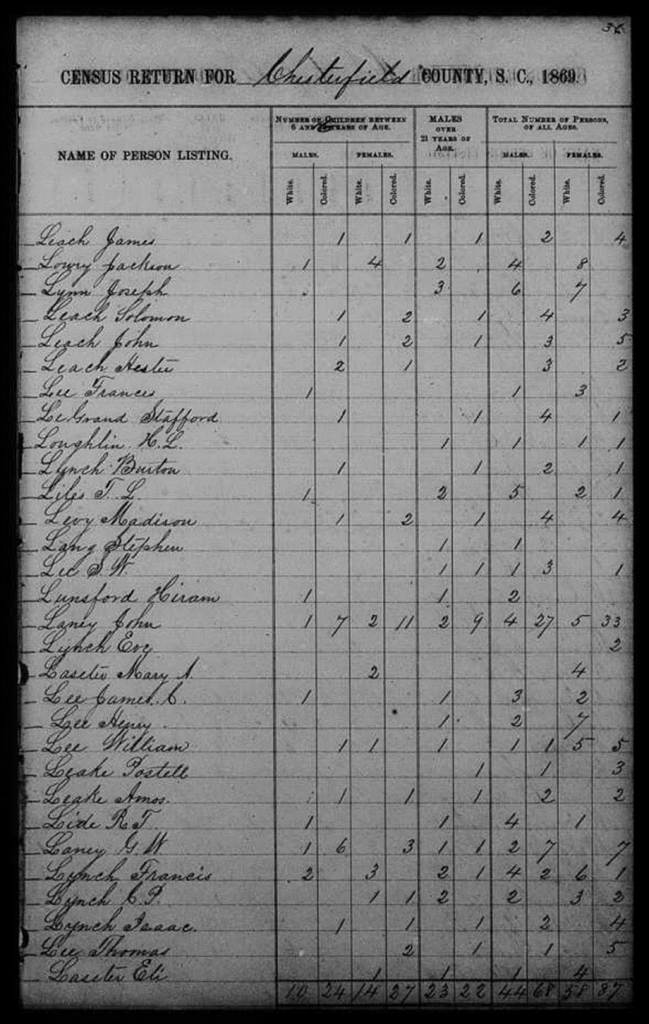 36
CENSUS RETURN FOR Chesterfield COUNTY, S. C., 1869.
NAME OF PERSON LISTING.
NUMBER OF CHILDREN BETWEEN 6 AND 16 YEARS OF AGE.
MALES OVER 21 YEARS OF AGE.
TOTAL NUMBER OF PERSONS, OF ALL AGES.
MALES. FEMALES. MALES. FEMALES.
White. Colored. White. Colored. White. Colored. White. Colored. White. Colored.
Leach James 1 1 1 2 4
Lowry Jackson 1 4 2 4 8
Lynn Joseph 3 6 7
Leach Solomon 1 2 1 4 3
Leach John 1 2 1 3 5
Leach Hester 2 1 3 2
Lee Frances 1 1 3
LeGrand Stafford 1 1 4 1
Loughlin H. L. 1 1 1 1
Lynch Burton 1 1 2 1
Liles T. L. 1 2 5 2 1
Levy Madison 1 2 1 4 4
Lang Stephen 1 1
Lee S. W. 1 1 1 3 1
Lunsford Hiram 1 1 2
Laney John 1 7 2 11 2 9 4 27 5 33
Lynch 2
Laseter Mary A. 2 4
Lee James C. 1 1 3 2
Lee Henry 1 2 7
Lee William 1 1 1 1 1 5 5
Leake Postell 1 1 3
Leake Amos. 1 1 1 2 2
Lide R. T. 1 1 4 1
Laney G. W 1 6 3 1 1 2 7 7
Lynch Francis 2 3 2 1 4 2 6 1
Lynch C. P. 1 1 2 2 3 2
Lynch Isaac. 1 1 1 2 4
Lee Thomas 2 1 1 5
Laseter Eli 1 1 1 4
10 24 14 27 23 22 44 68 58 87